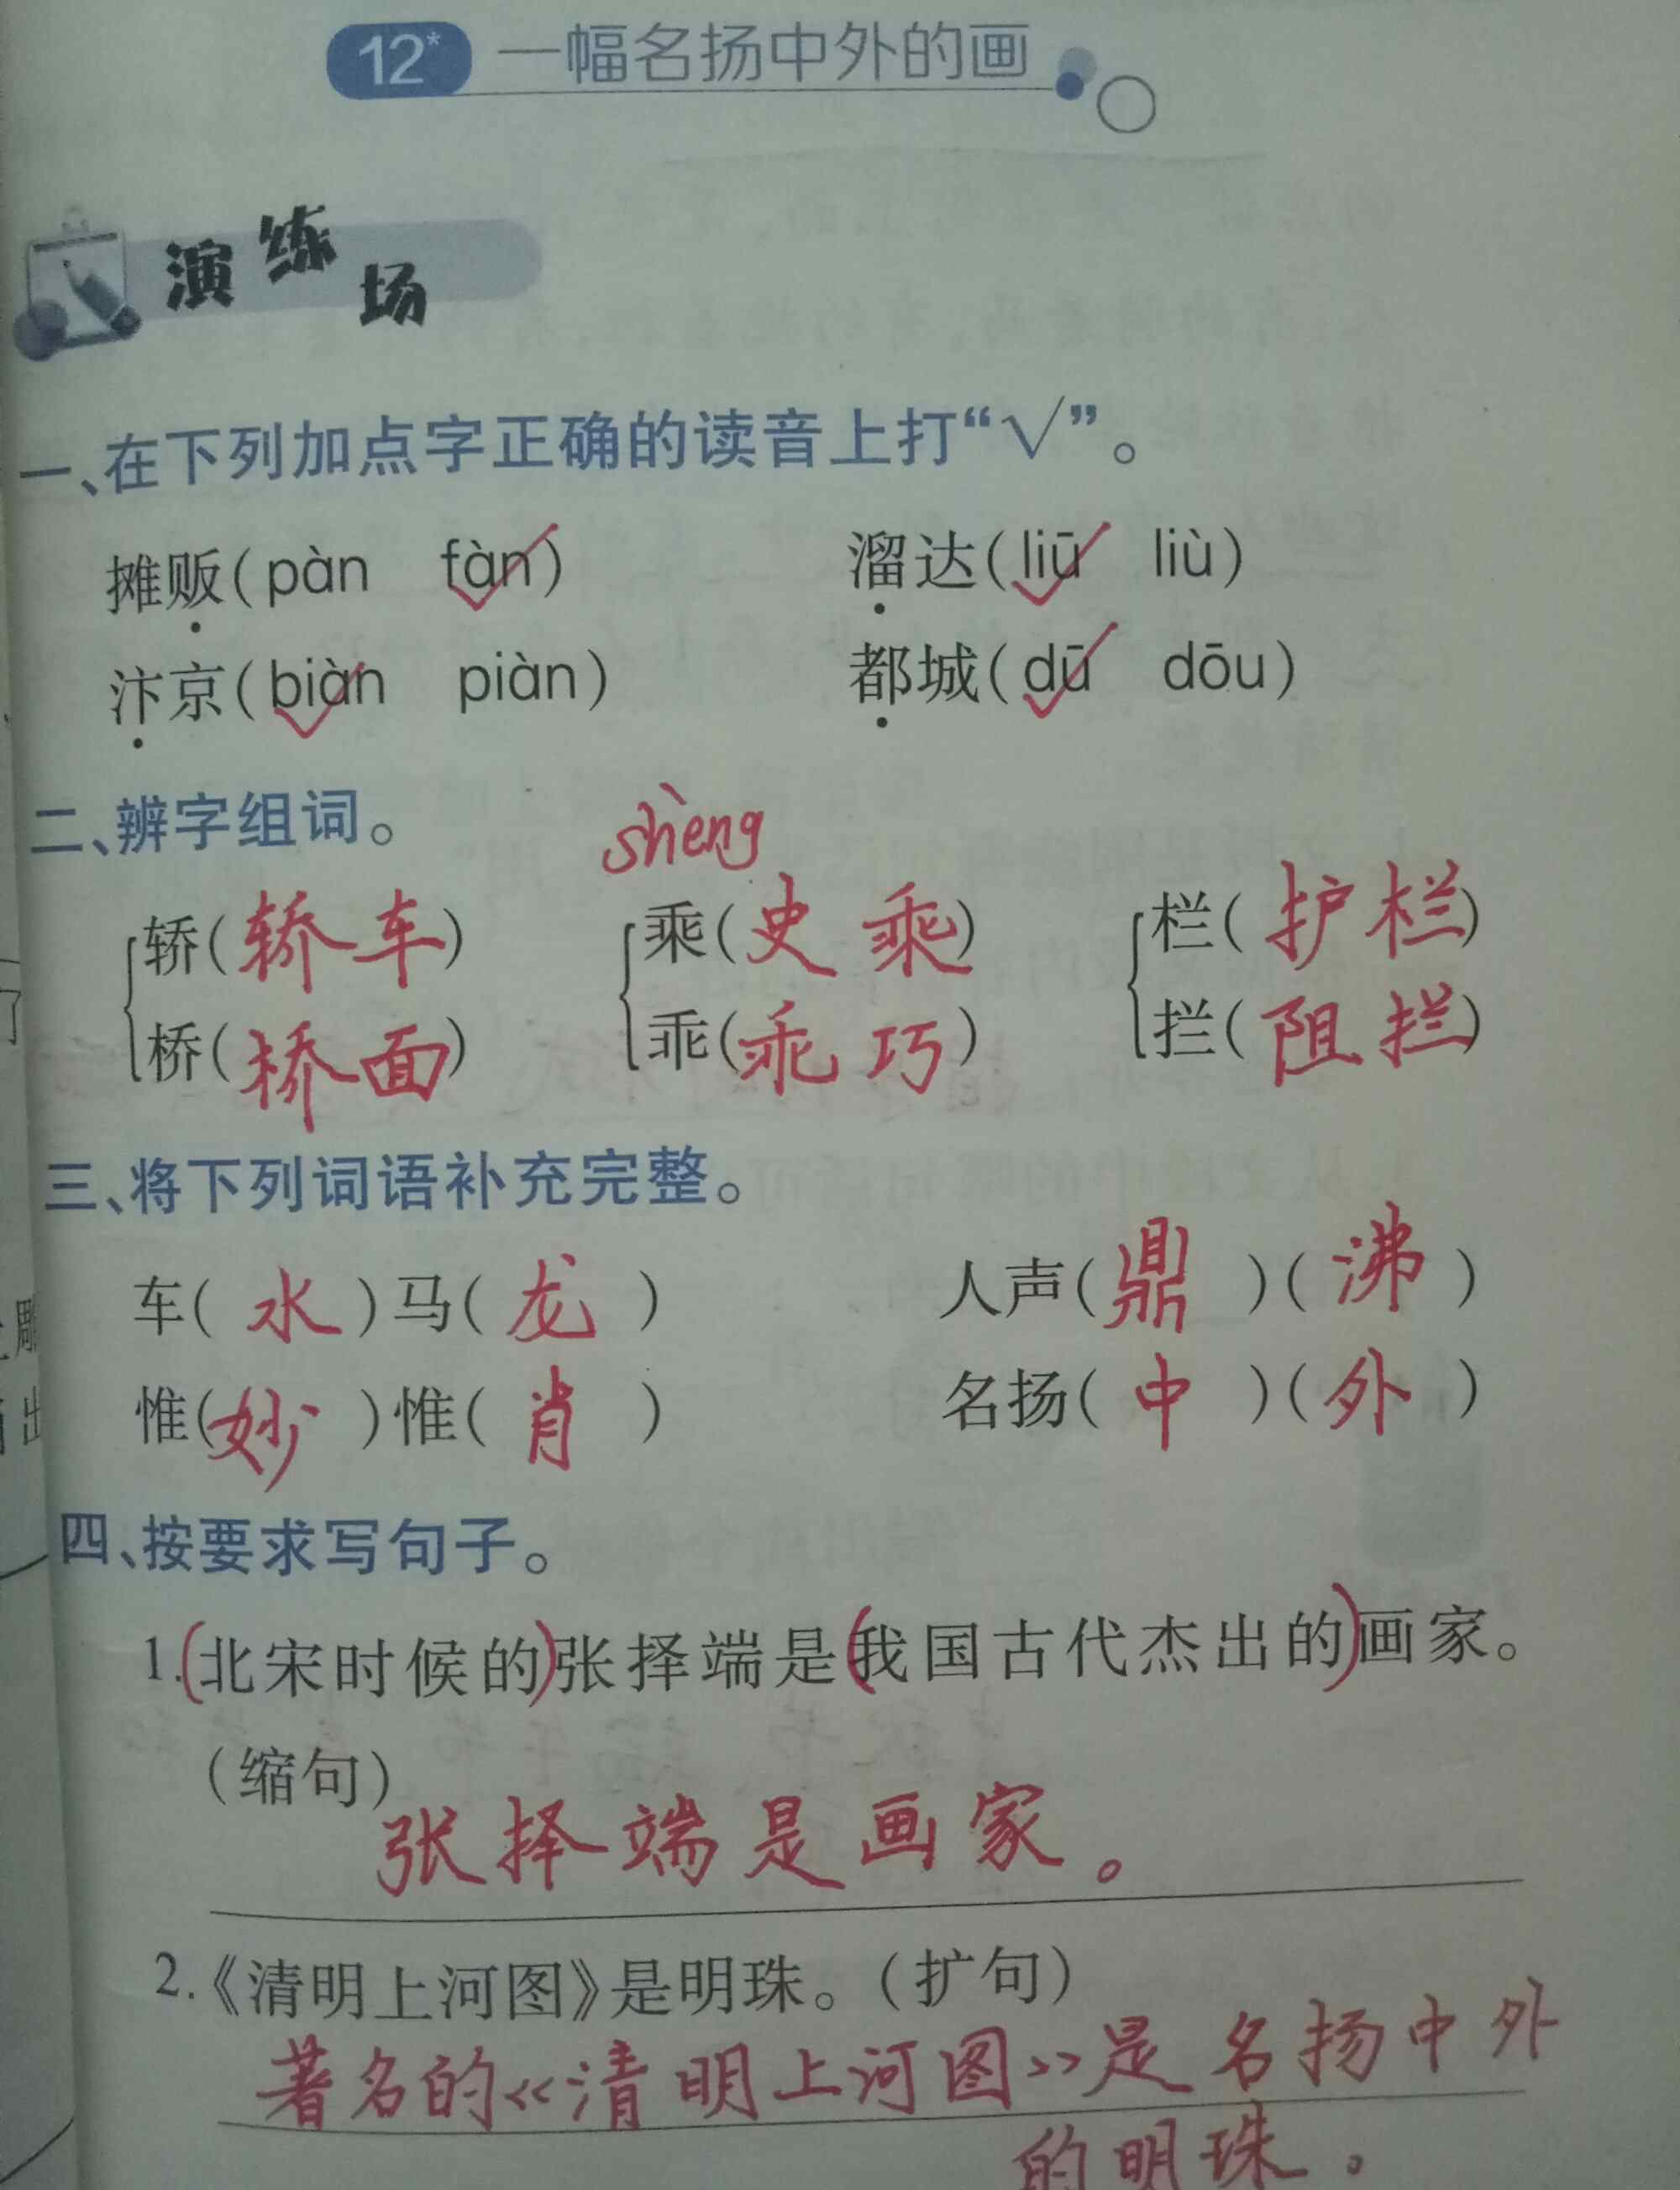 12* 一幅名扬中外的画
演练场
一、在下列加点字正确的读音上打“√”。
摊贩(pàn fàn✓) 溜达(liū✓ liù)
汴京(biàn✓ piàn) 都城(dū✓ dōu)
二、辨字组词。
shèng
轿(轿车) 乘(史乘) 栏(护栏)
桥(桥面) 乖(乖巧) 拦(阻拦)
三、将下列词语补充完整。
车(水)马(龙) 人声(鼎)(沸)
惟(妙)惟(肖) 名扬(中)(外)
四、按要求写句子。
1.(北宋时候的)张择端是(我国古代杰出的)画家。
(缩句)
张择端是画家。
2.《清明上河图》是明珠。(扩句)
著名的《清明上河图》是名扬中外
的明珠。